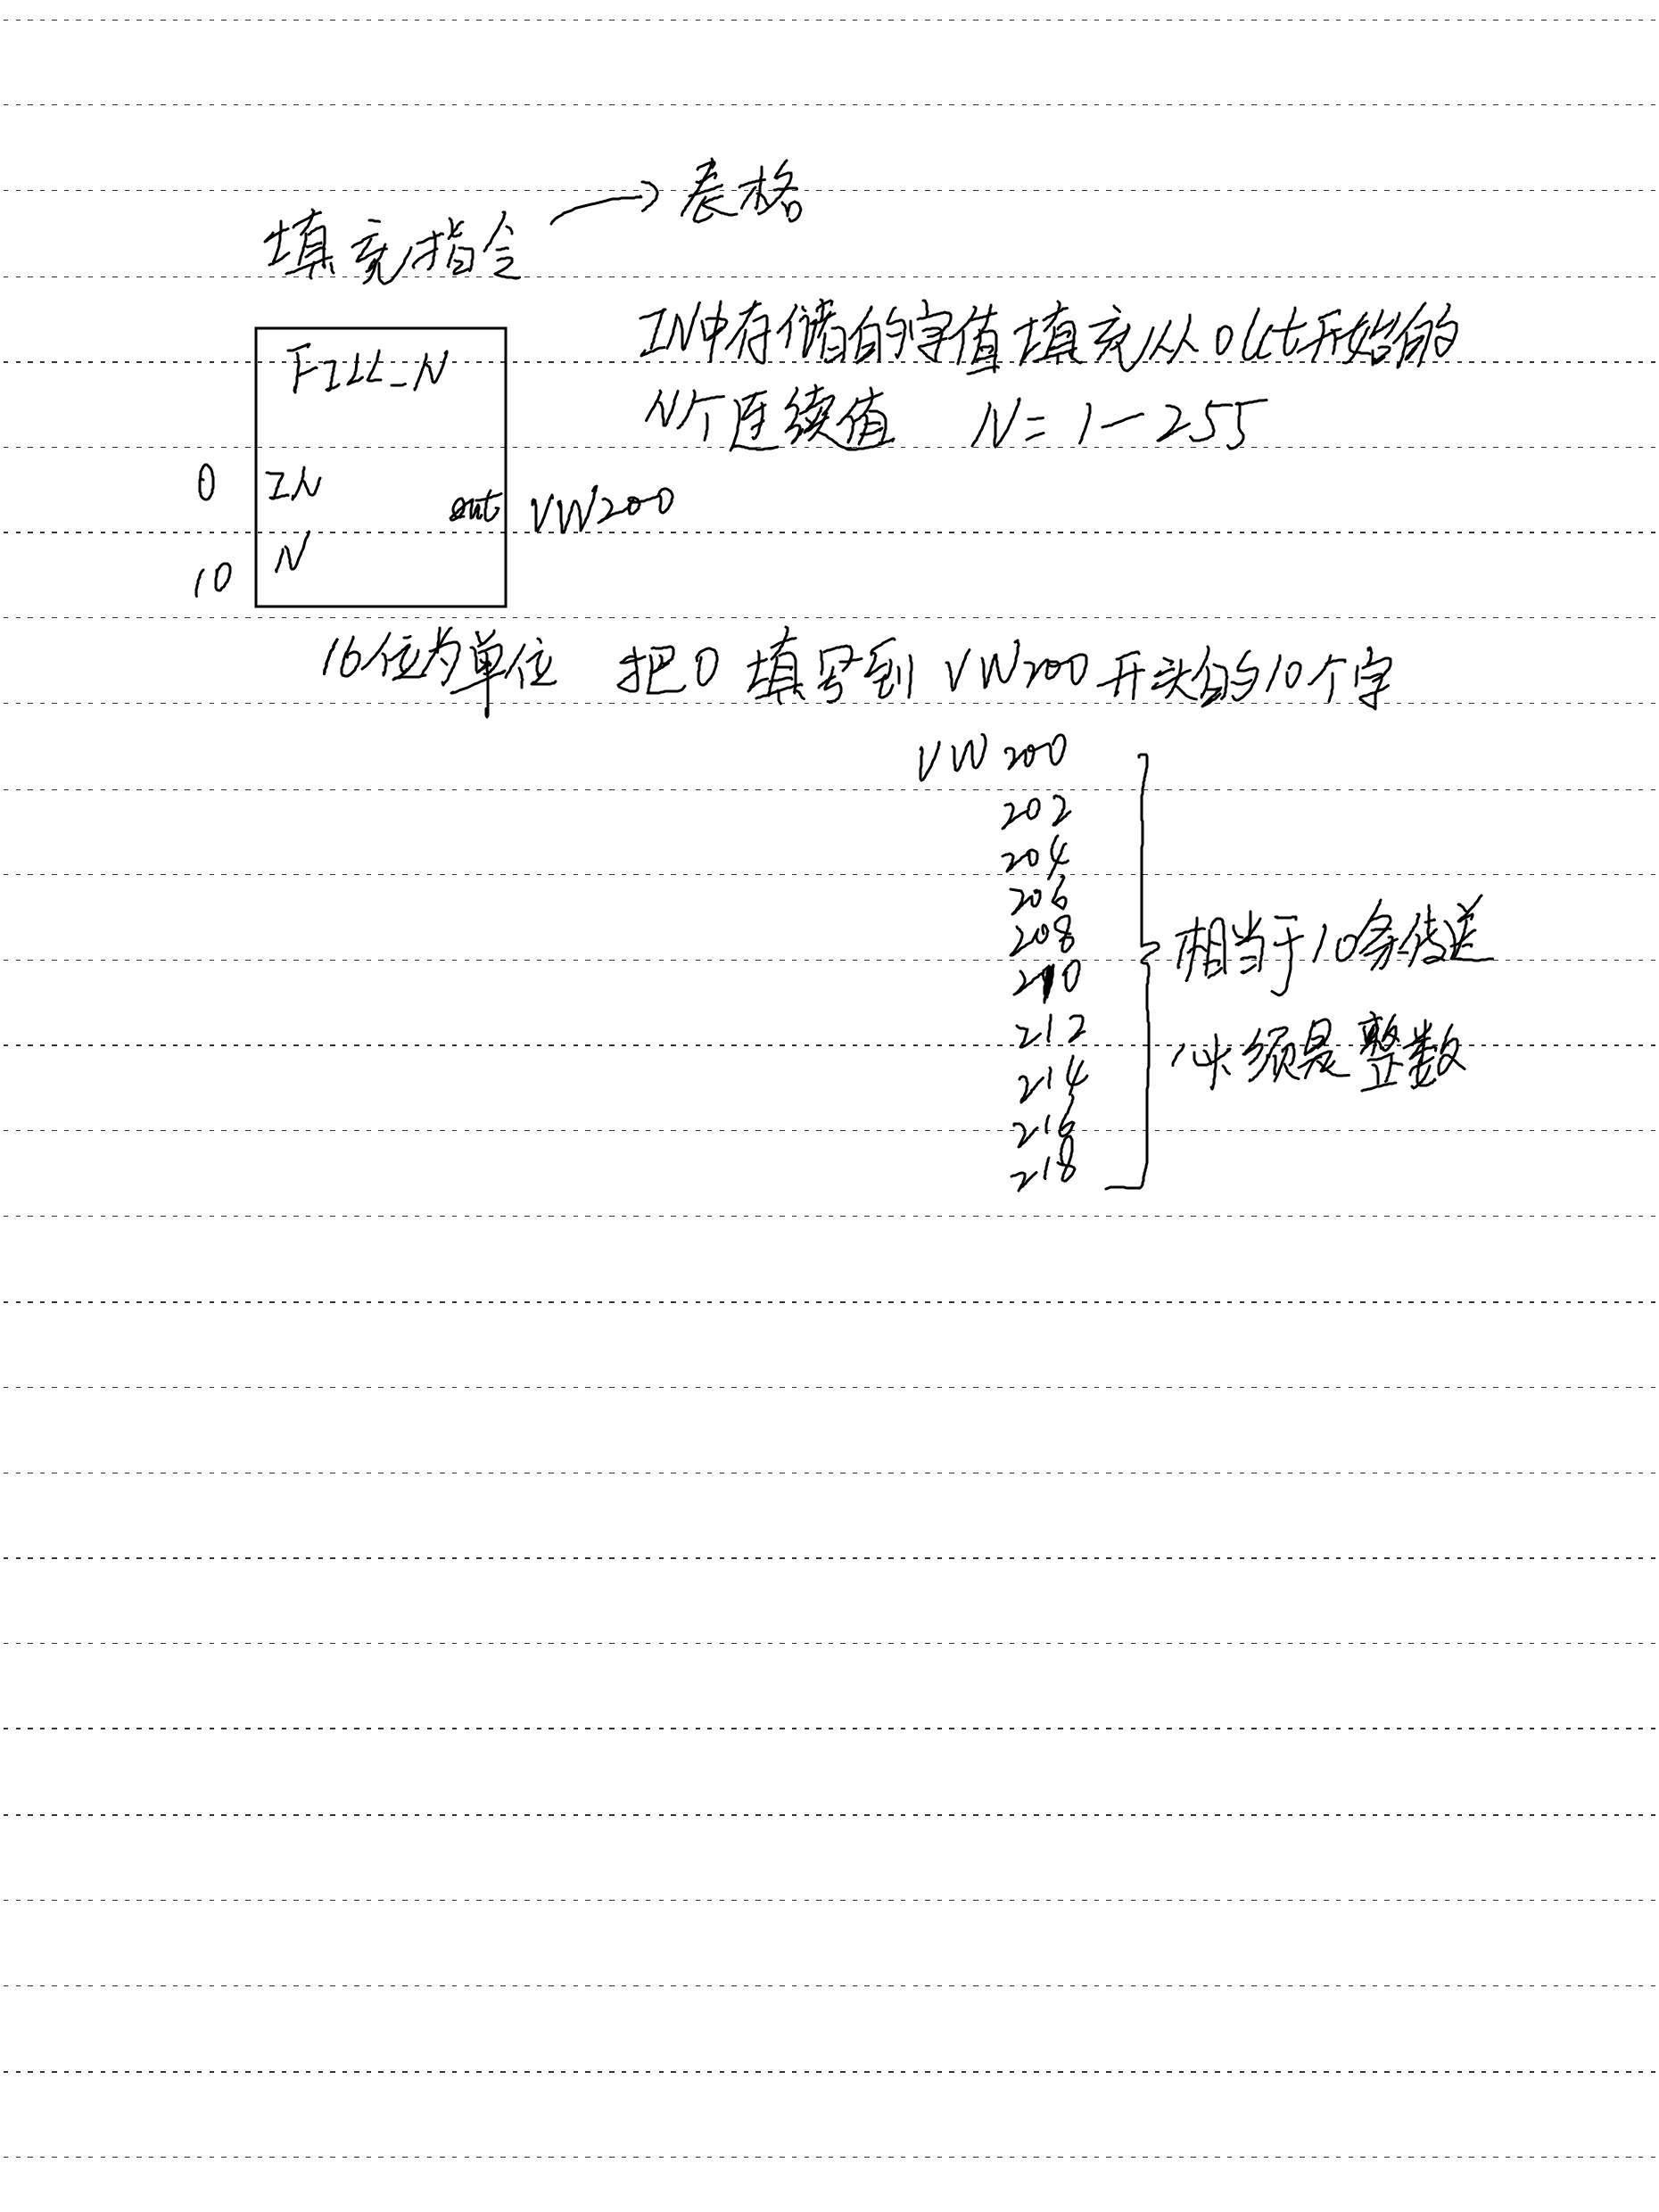 填充指令 → 表格
IN中存储的字值填充从out开始的
N个连续值 N=1—255
FILL_N
0 IN
out VW200
10 N
16位为单位 把0填写到VW200开头的10个字
VW200
202
204
206
208
210
212
214
216
218
相当于10条传送
必须是整数